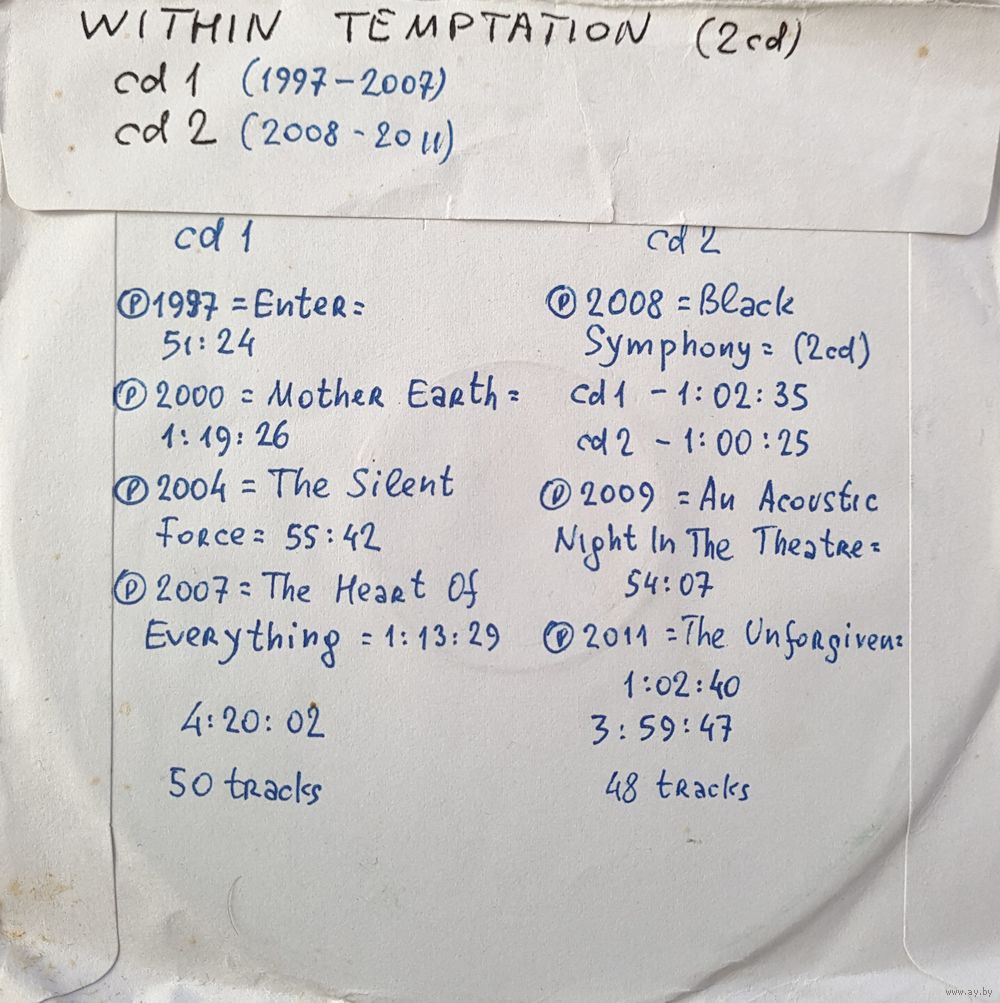 WITHIN TEMPTATION (2cd)
cd 1 (1997-2007)
cd 2 (2008-2011)
cd 1
Ⓟ 1997 = Enter =
51:24
Ⓟ 2000 = Mother Earth =
1:19:26
Ⓟ 2004 = The Silent
Force = 55:42
Ⓟ 2007 = The Heart Of
Everything = 1:13:29
4:20:02
50 tracks
cd 2
Ⓟ 2008 = Black
Symphony = (2cd)
cd 1 - 1:02:35
cd 2 - 1:00:25
Ⓟ 2009 = An Acoustic
Night In The Theatre =
54:07
Ⓟ 2011 = The Unforgiven =
1:02:40
3:59:47
48 tracks
www.ay.by